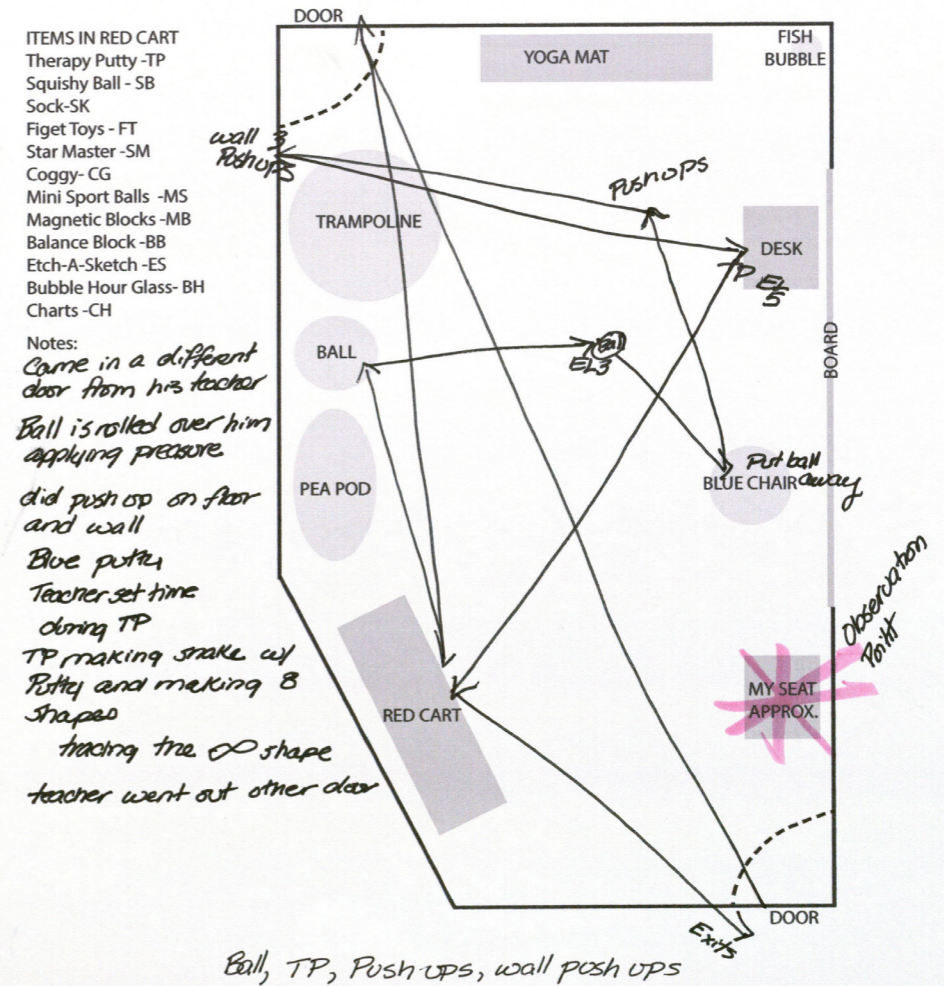 DOOR
ITEMS IN RED CART
Therapy Putty -TP
Squishy Ball - SB
Sock-SK
Figet Toys - FT
Star Master -SM
Coggy- CG
Mini Sport Balls -MS
Magnetic Blocks -MB
Balance Block -BB
Etch-A-Sketch -ES
Bubble Hour Glass- BH
Charts -CH
Notes:
Came in a different
door from his teacher
Ball is rolled over him
applying preasure
did push up on floor
and wall
Blue putty
Teacher set time
during TP
TP making snake w/
Putty and making 8
shapes
tracing the ∞ shape
teacher went out other door
YOGA MAT
FISH
BUBBLE
wall
Push ups
TRAMPOLINE
Push ups
DESK
TP
EL
5
BALL
Ball
EL3
BOARD
PEA POD
Put ball
BLUE CHAIR away
Observation
Point
MY SEAT
APPROX.
RED CART
DOOR
Exits
Ball, TP, Push-ups, wall push ups